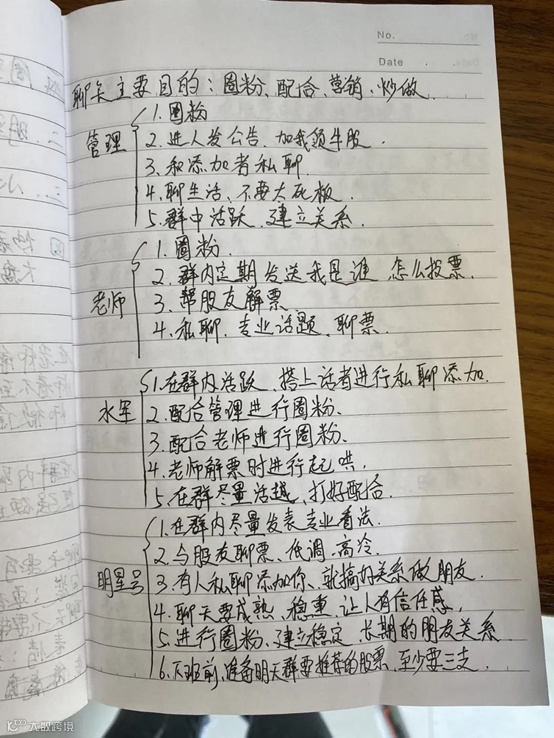 No.
Date
聊天主要目的：圈粉、配合、营销、炒做
管理
1. 圈粉
2. 进人发公告、加我领牛股.
3. 和添加者私聊.
4. 聊生活、不要太死板.
5. 群中活跃、建立关系.
老师
1. 圈粉.
2. 群内定期发送我是谁 怎么投票.
3. 帮股友解票
4. 私聊、专业话题、聊票.
水军
1. 在群内活跃、搭上话者进行私聊添加.
2. 配合管理进行圈粉、
3. 配合老师进行圈粉.
4. 老师解票时进行起哄.
5. 在群尽量活越、打好配合.
明星号
1. 在群内尽量发表专业看法.
2. 与股友聊票、低调、高冷.
3. 有人私聊添加你、就搞好关系做朋友.
4. 聊天要成熟、稳重、让人有信任感.
5. 进行圈粉、建立稳定 长期的朋友关系
6. 下班前、准备明天群要推荐的股票、至少要三支.
大数跨境